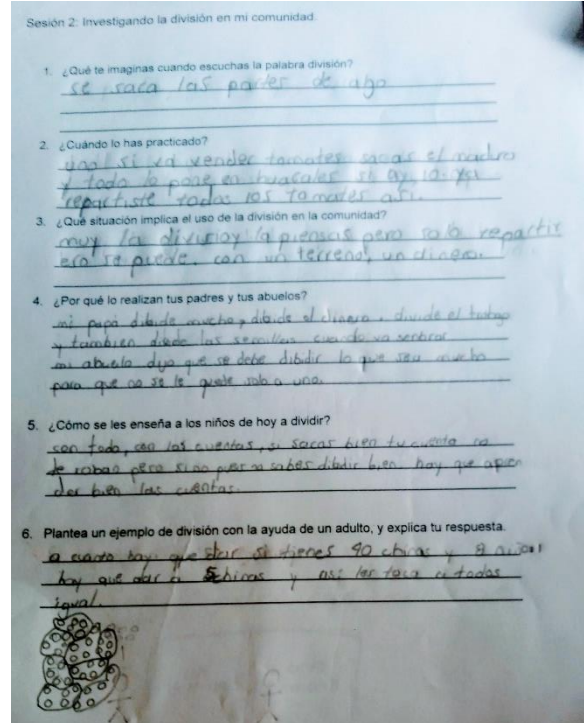 Sesión 2: Investigando la división en mi comunidad.
1. ¿Qué te imaginas cuando escuchas la palabra división?
se saca las partes de algo
2. ¿Cuándo lo has practicado?
uno si va vender tomates sacas el
y todo lo pone en huacales si ay 10 ya
repartiste todos los tomates asi.
3. ¿Qué situación implica el uso de la división en la comunidad?
muy la divicioy la piensas pero solo repartir
ero se puede. con un terreno, un dinero.
4. ¿Por qué lo realizan tus padres y tus abuelos?
mi papá dibide mucho, dibide el dinero, divide el trabajo
y tambien divide las semillas cuando va sembrar
mi abuelo dijo que se debe dibidir lo que sea mucho
para que no se le quede solo a uno.
5. ¿Cómo se les enseña a los niños de hoy a dividir?
con todo, con las cuentas, si sacas bien tu cuenta no
te roban pero si no pues no sabes dibidir bien. hay que apren
der bien las cuentas.
6. Plantea un ejemplo de división con la ayuda de un adulto, y explica tu respuesta.
a cuanto hay que dar si tienes 40 chinas y 8
hay que dar a 5 chinas y asi les toca a todos
igual.